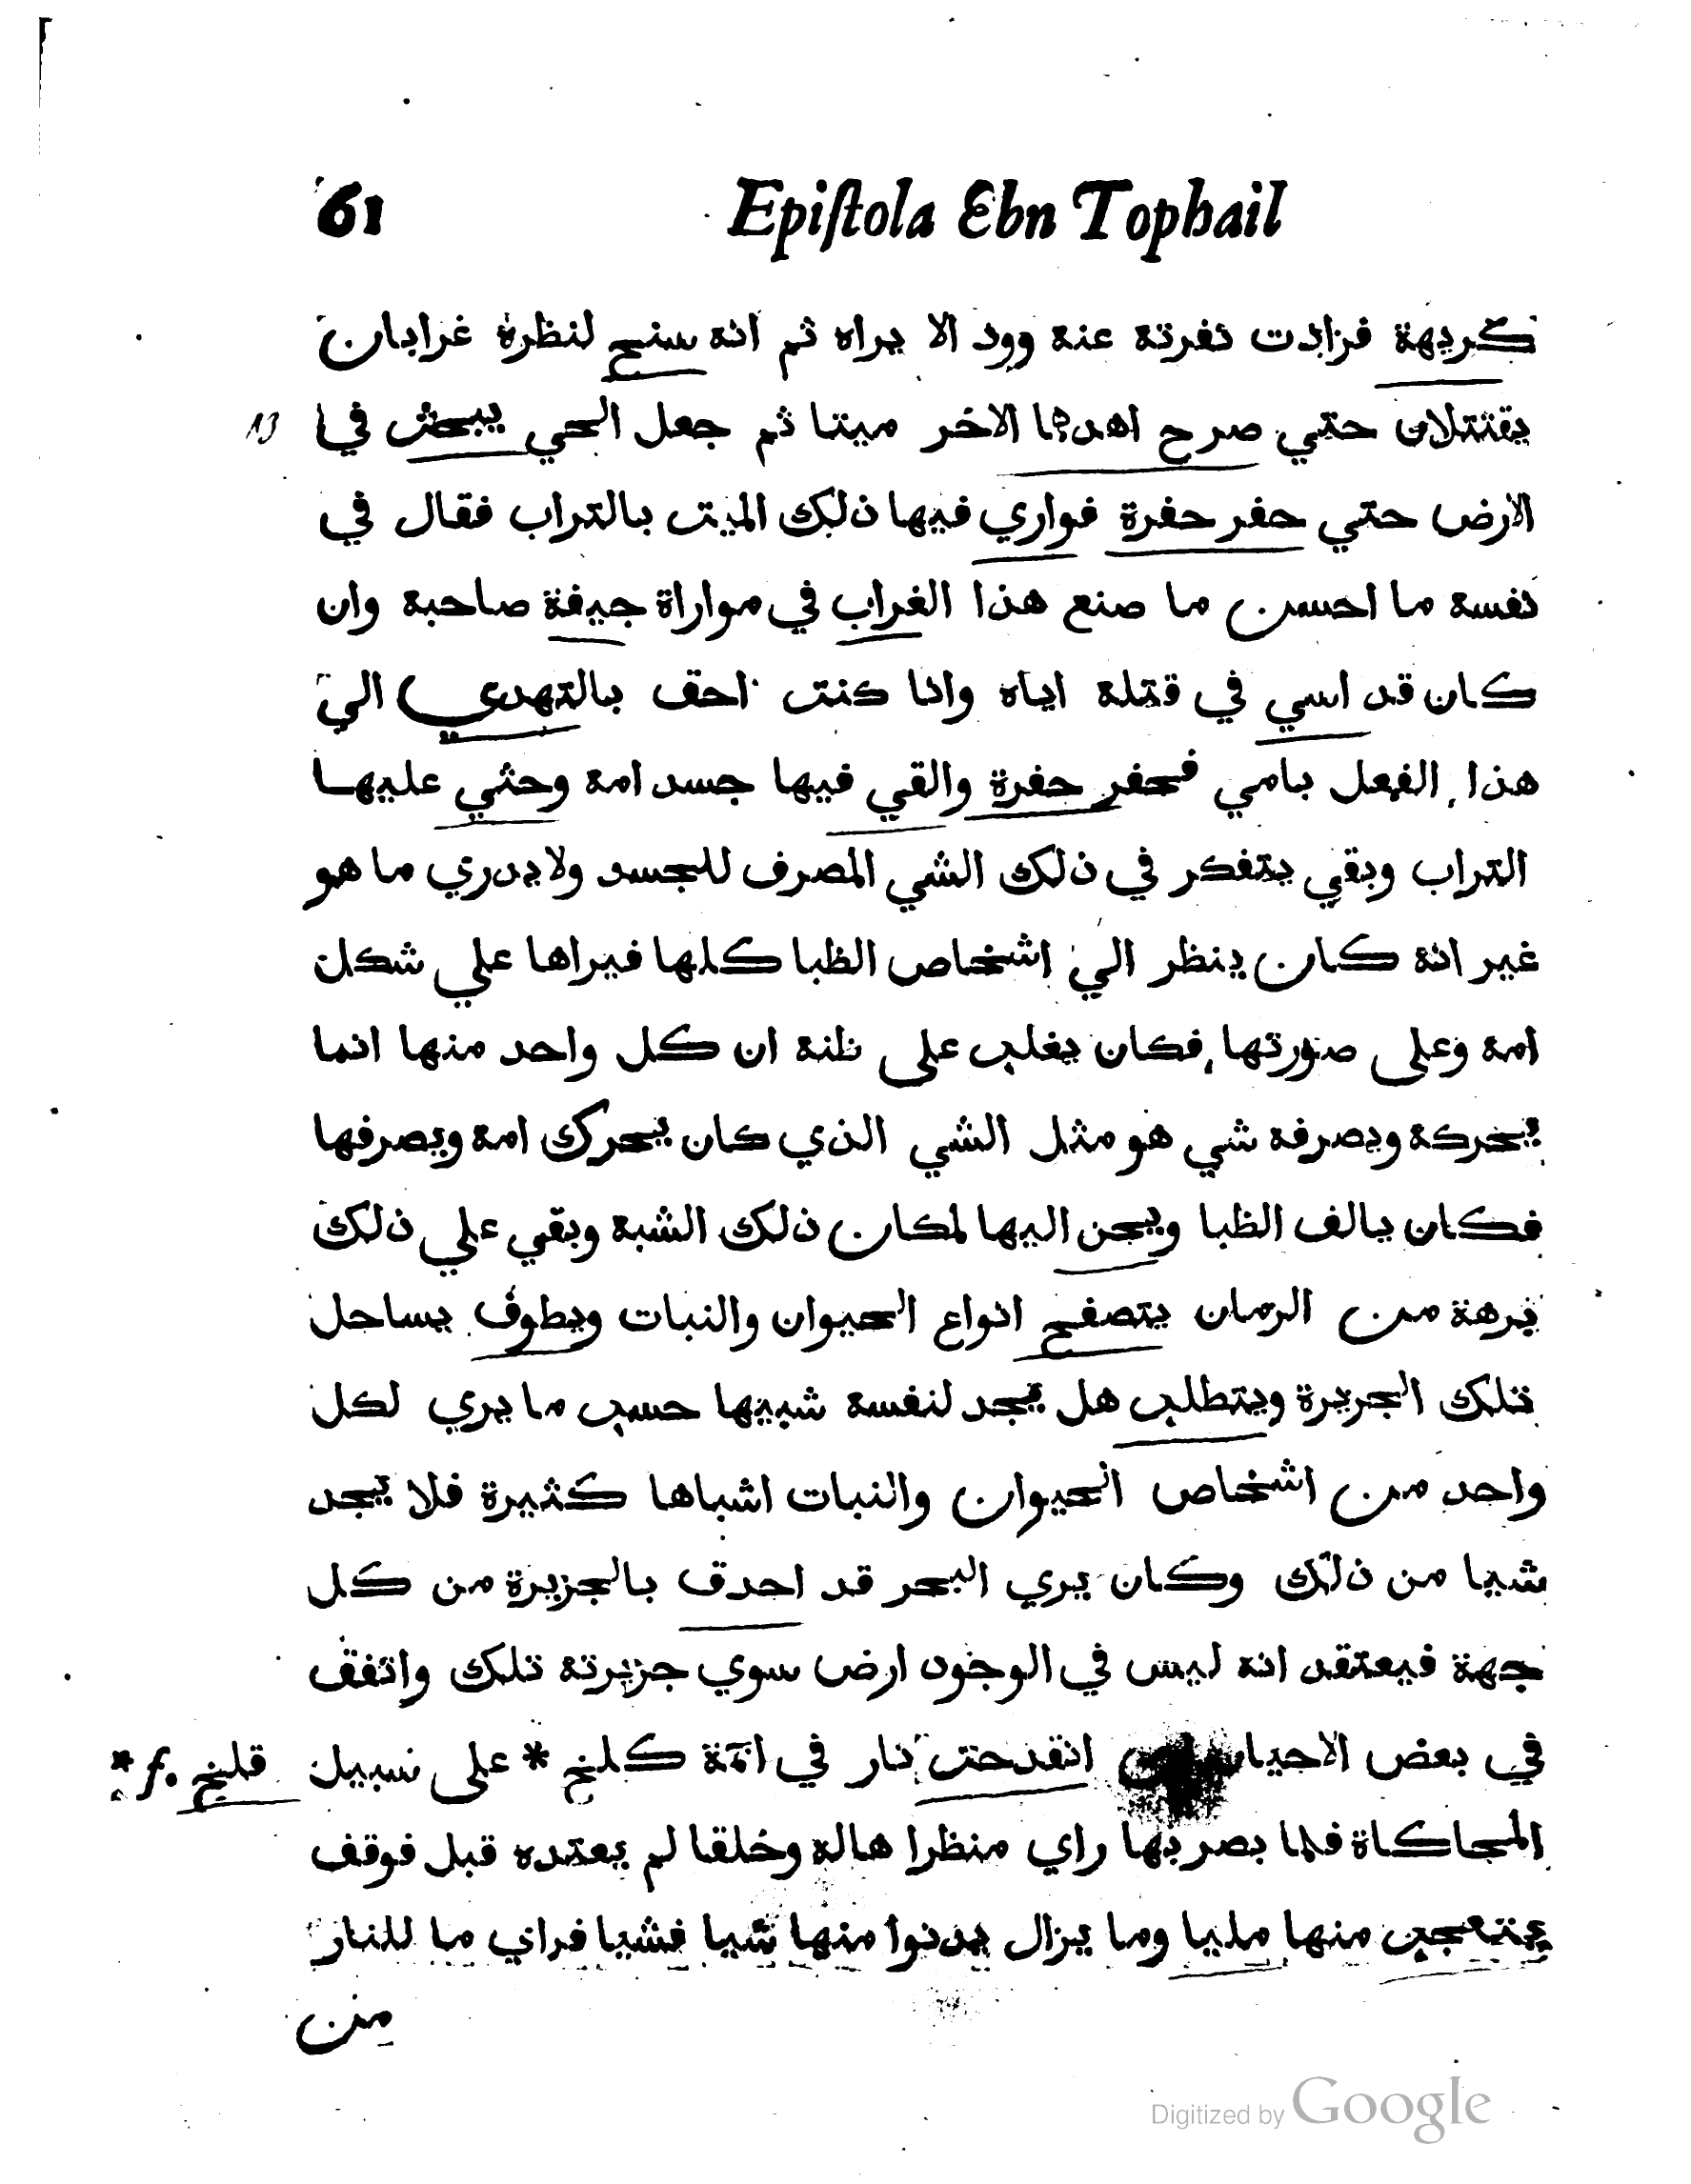 61 Epiſtola Ebn Tophail
كريهة فزادت نفرته عنه وود الا يراه ثم انه سنح لنظرة غرابان
يقتتلان حتي صرح اهدهما الاخر ميتا ثم جعل الحي يبحث في ا
الارض حتي حفر حفرة فواري فيها ذلك الميت بالتراب فقال في
نفسه ما احسن ما صنع هذا الغراب في مواراة جيفة صاحبه وان
كان قد اسي في قتله اياه وانا كنت احق بالتهدي الي
هذا الفعل بامي فحفر حفرة والقي فيها جسد امه وحثي عليها
التراب وبقي يتفكر في ذلك الشي المصرف للجسد ولا يدري ما هو
غير انه كان ينظر الي اشخاص الظبا كلها فيراها علي شكل
امه وعلى صورتها فكان يغلب على ظنه ان كل واحد منها انما
يحركه ويصرفه شي هو مثل الشي الذي كان يحرك امه ويصرفها
فكان يالف الظبا ويحن اليها لمكان ذلك الشبه وبقي علي ذلك
برهة من الزمان يتصفح انواع الحيوان والنبات ويطوف بساحل
تلك الجزيرة ويتطلب هل يجد لنفسه شبيها حسب ما يري لكل
واحد من اشخاص الحيوان والنبات اشباها كثيرة فلا يجد
شيا من ذلك وكان يري البحر قد احدق بالجزيرة من كل
جهة فيعتقد انه ليس في الوجود ارض سوي جزيرته تلك واتفق
في بعض الاحيان انقدحت نار في اجمة كلخ * على سبيل
* f. قلخ
المحاكاة فلما بصر بها راي منظرا هاله وخلقا لم يعتده قبل فوقف
يتعجب منها مليا وما يزال يدنوا منها شيا فشيا فراي ما للنار
من
Digitized by Google